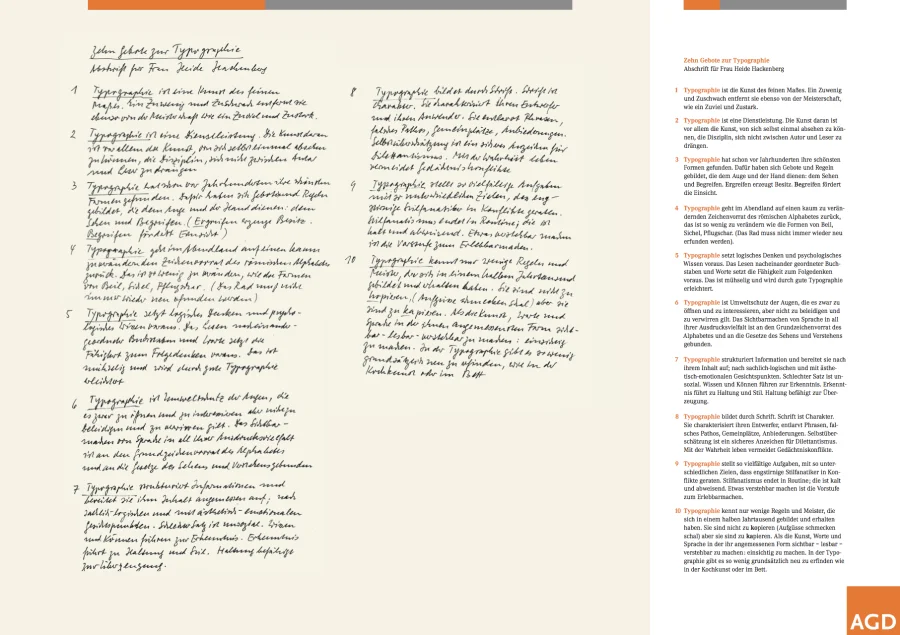 Zehn Gebote zur Typographie
Abschrift für Frau Heide Hackenberg
1 Typographie ist eine Kunst des feinen
Maßes. Ein Zuwenig und Zuschwach entfernt sie
ebenso von der Meisterschaft wie ein Zuviel und Zustark.
2 Typographie ist eine Dienstleistung. Die Kunst daran
ist vor allem die Kunst, von sich selbst einmal absehen
zu können, die Disziplin, sich nicht zwischen Autor
und Leser zu drängen
3 Typographie hat schon vor Jahrhunderten ihre schönsten
Formen gefunden. Dafür haben sich Gebote und Regeln
gebildet, die dem Auge und der Hand dienen: dem
Sehen und Begreifen. (Ergreifen erzeugt Besitz.
Begreifen fördert Einsicht)
4 Typographie geht im Abendland auf einen kaum
zu verändernden Zeichenvorrat des römischen Alphabetes
zurück. Das ist so wenig zu verändern, wie die Formen
von Beil, Sichel, Pflugschar. (Das Rad muß nicht
immer wieder neu erfunden werden)
5 Typographie setzt logisches Denken und psycho-
logisches Wissen voraus. Das Lesen nacheinander-
geordneter Buchstaben und Worte setzt die
Fähigkeit zum Folgedenken voraus. Das ist
mühselig und wird durch gute Typographie
erleichtert
6 Typographie ist Umweltschutz der Augen, die
es zwar zu öffnen und zu interessieren aber nicht zu
beleidigen und zu verwirren gilt. Das Sichtbar-
machen von Sprache in all ihrer Ausdrucksvielfalt
ist an den Grundzeichenvorrat des Alphabetes
und an die Gesetze des Sehens und Verstehens gebunden
7 Typographie strukturiert Informationen und
bereitet sie ihrem Inhalt angemessen auf; nach
sachlich-logischen und mit ästhetisch-emotionalen
Gesichtspunkten. Schlechter Satz ist unsozial. Wissen
und Können führen zur Erkenntnis. Erkenntnis
führt zu Haltung und Stil. Haltung befähigt
zur Überzeugung.
8 Typographie bildet durch Schrift. Schrift ist
Charakter. Sie charakterisiert ihren Entwerfer
und ihren Anwender. Sie entlarvt Phrasen,
falsches Pathos, Gemeinplätze, Anbiederungen.
Selbstüberschätzung ist ein sicheres Anzeichen für
Dilettantismus. Mit der Wahrheit leben
vermeidet Gedächtniskonflikte.
9 Typographie stellt so vielfältige Aufgaben
mit so unterschiedlichen Zielen, dass eng-
stirnige Stilfanatiker in Konflikte geraten.
Stilfanatismus endet in Routine; die ist
kalt und abweisend. Etwas verstehbar machen
ist die Vorstufe zum Erlebbarmachen.
10 Typographie kennt nur wenige Regeln und
Meister, die sich in einem halben Jahrtausend
gebildet und erhalten haben. Sie sind nicht zu
kopieren, (Aufgüsse schmecken schal) aber sie
sind zu kapieren. Als die Kunst, Worte und
Sprache in der ihnen angemessenen Form sicht-
bar - lesbar - verstehbar zu machen: einsichtig
zu machen. In der Typographie gibt es so wenig
grundsätzlich neu zu erfinden, wie in der
Kochkunst oder im Bett
Zehn Gebote zur Typographie
Abschrift für Frau Heide Hackenberg
1 Typographie ist die Kunst des feinen Maßes. Ein Zuwenig
und Zuschwach entfernt sie ebenso von der Meisterschaft,
wie ein Zuviel und Zustark.
2 Typographie ist eine Dienstleistung. Die Kunst daran ist
vor allem die Kunst, von sich selbst einmal absehen zu kön-
nen, die Disziplin, sich nicht zwischen Autor und Leser zu
drängen.
3 Typographie hat schon vor Jahrhunderten ihre schönsten
Formen gefunden. Dafür haben sich Gebote und Regeln
gebildet, die dem Auge und der Hand dienen: dem Sehen
und Begreifen. Ergreifen erzeugt Besitz. Begreifen fördert
die Einsicht.
4 Typographie geht im Abendland auf einen kaum zu verän-
dernden Zeichenvorrat des römischen Alphabetes zurück,
das ist so wenig zu verändern wie die Formen von Beil,
Sichel, Pflugschar. (Das Rad muss nicht immer wieder neu
erfunden werden).
5 Typographie setzt logisches Denken und psychologisches
Wissen voraus. Das Lesen nacheinander geordneter Buch-
staben und Worte setzt die Fähigkeit zum Folgedenken
voraus. Das ist mühselig und wird durch gute Typographie
erleichtert.
6 Typographie ist Umweltschutz der Augen, die es zwar zu
öffnen und zu interessieren, aber nicht zu beleidigen und
zu verwirren gilt. Das Sichtbarmachen von Sprache in all
ihrer Ausdrucksvielfalt ist an den Grundzeichenvorrat des
Alphabetes und an die Gesetze des Sehens und Verstehens
gebunden.
7 Typographie strukturiert Information und bereitet sie nach
ihrem Inhalt auf; nach sachlich-logischen und mit ästhe-
tisch-emotionalen Gesichtspunkten. Schlechter Satz ist un-
sozial. Wissen und Können führen zur Erkenntnis. Erkennt-
nis führt zu Haltung und Stil. Haltung befähigt zur Über-
zeugung.
8 Typographie bildet durch Schrift. Schrift ist Charakter.
Sie charakterisiert ihren Entwerfer, entlarvt Phrasen, fal-
sches Pathos, Gemeinplätze, Anbiederungen. Selbstüber-
schätzung ist ein sicheres Anzeichen für Dilettantismus.
Mit der Wahrheit leben vermeidet Gedächtniskonflikte.
9 Typographie stellt so vielfältige Aufgaben, mit so unter-
schiedlichen Zielen, dass engstirnige Stilfanatiker in Kon-
flikte geraten. Stilfanatismus endet in Routine; die ist kalt
und abweisend. Etwas verstehbar machen ist die Vorstufe
zum Erlebbarmachen.
10 Typographie kennt nur wenige Regeln und Meister, die
sich in einem halben Jahrtausend gebildet und erhalten
haben. Sie sind nicht zu kopieren (Aufgüsse schmecken
schal) aber sie sind zu kapieren. Als die Kunst, Worte und
Sprache in der ihr angemessenen Form sichtbar – lesbar –
verstehbar zu machen: einsichtig zu machen. In der Typo-
graphie gibt es so wenig grundsätzlich neu zu erfinden wie
in der Kochkunst oder im Bett.
AGD